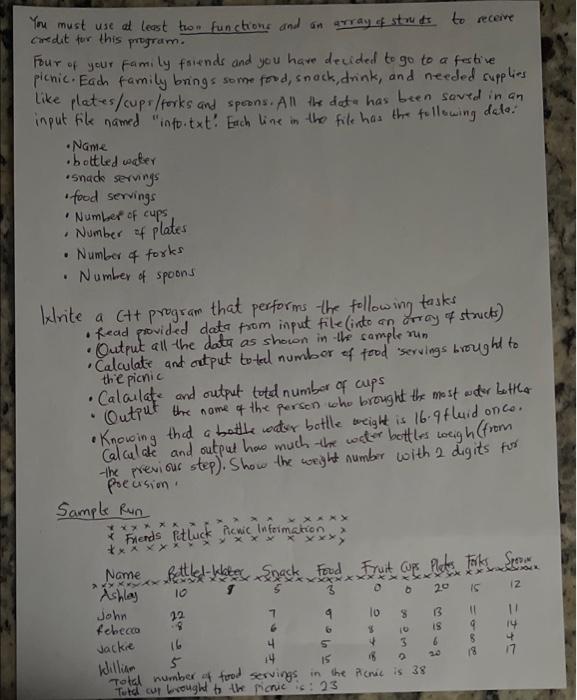 You must use at least two functions and an array of structs to receive
credit for this program.
Four of your family friends and you have decided to go to a festive
picnic. Each family brings some food, snack, drink, and needed supplies
like plates/cups/forks and spoons. All the data has been saved in an
input file named "info.txt". Each line in the file has the following data:
• Name
• bottled water
• snack servings
• food servings
• Number of cups
• Number of plates
• Number of forks
• Number of spoons
Write a C++ program that performs the following tasks
• Read provided data from input file (into an array of structs)
• Output all the data as shown in the sample run
• Calculate and output total number of food servings brought to
the picnic
• Calculate and output total number of cups
• Output the name of the person who brought the most water bottles
• Knowing that a bottle water bottle weight is 16.9 fluid once.
Calculate and output how much the water bottles weigh (from
the previous step). Show the weight number with 2 digits for
precision.
Sample Run
x x x x x x x x x x x x x
x Friends Potluck Picnic Information x
x x x x x x x x x x x x x
Name Bottled-Water Snack Food Fruit Cups Plates Forks Spoons
x x x x x x x x x x x x x x x x x x x x x x x x
Ashley 10 5 3 0 0 20 15 12
John 22 7 9 10 8 13 11 11
Rebecca 8 6 6 8 10 18 9 14
Jackie 16 4 5 4 3 6 8 4
William 5 14 15 18 2 20 18 17
Total number of food servings in the Picnic is 38
Total cup brought to the picnic is: 23